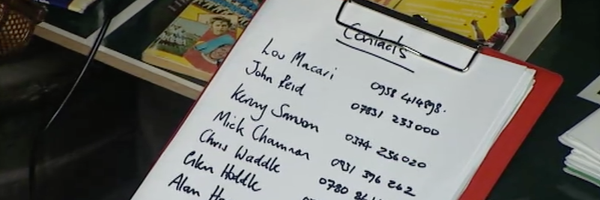 Contacts
Lou Macari 0958 414898.
John Reid 07831 233000
Kenny Sansom 0374 256020
Mick Channon 0931 396 262
Chris Waddle 0780
Glen Hoddle
Alan